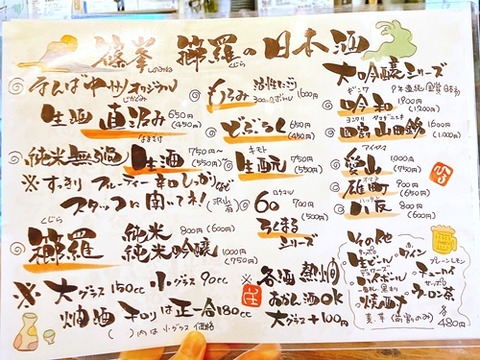 篠峯 櫛羅の日本酒
すんば中州オリジナル
生酒 直汲み 650円 (450円)
純米無濾過生酒 750円〜 (550円〜)
※すっきり フルーティー 辛口 しっかりなど
スタッフに聞いてネ!
くじら
櫛羅 純米 800円 (600円)
純米吟醸 1000円 (750円)
※大グラス150cc 小グラス90cc
燗酒 チロリは正一合180cc
( )内は小グラス価格
もろみ 活性にごり 1600円
どぶろく 650円 (450円)
キモト
生酛 750円 (550円)
ロクマル
60 700円
ろくまる
シリーズ
※各酒 熱燗
お燗酒OK
大グラス+100円
大吟醸シリーズ
ギンワ
吟和 1800円 (1200円)
山田錦 1600円
アイヤマ
愛山 1000円 (750円)
雄町 900円 (650円)
八反 800円 (600円)
その他
生ビール
ハイボール
焼酎
ワイン
プレーン レモン
チューハイ
ウーロン茶
各480円